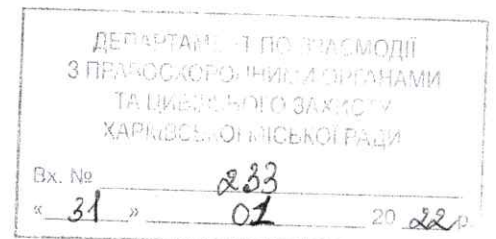 ДЕПАРТАМЕНТ ПО ВЗАЄМОДІЇ
З ПРАВООХОРОННИМИ ОРГАНАМИ
ТА ЦИВІЛЬНОГО ЗАХИСТУ
ХАРКІВСЬКОЇ МІСЬКОЇ РАДИ
Вх. № 233
« 31 » 01 20 22 р.